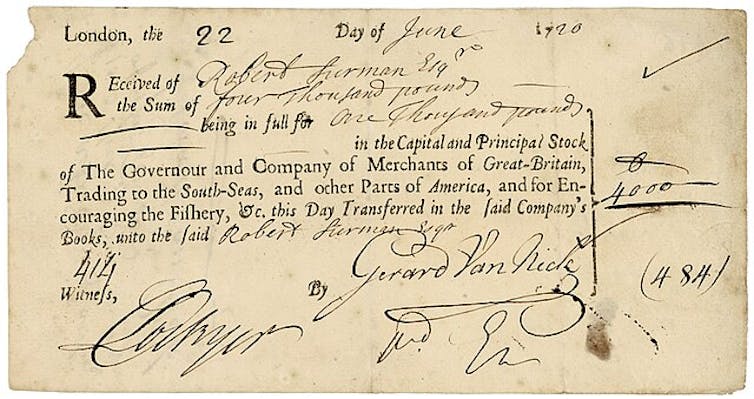 London, the 22 Day of June 1720
REceived of Robert Surman Esqr
the Sum of four Thousand pounds
being in full for One Thousand pounds
in the Capital and Principal Stock
of The Governour and Company of Merchants of Great-Britain,
Trading to the South-Seas, and other Parts of America, and for En-
couraging the Fiſhery, &c. this Day Transferred in the ſaid Company's
4000
Books, unto the ſaid Robert Surman Esqr
414
By Gerard Van Neck
(484)
Witneſs,